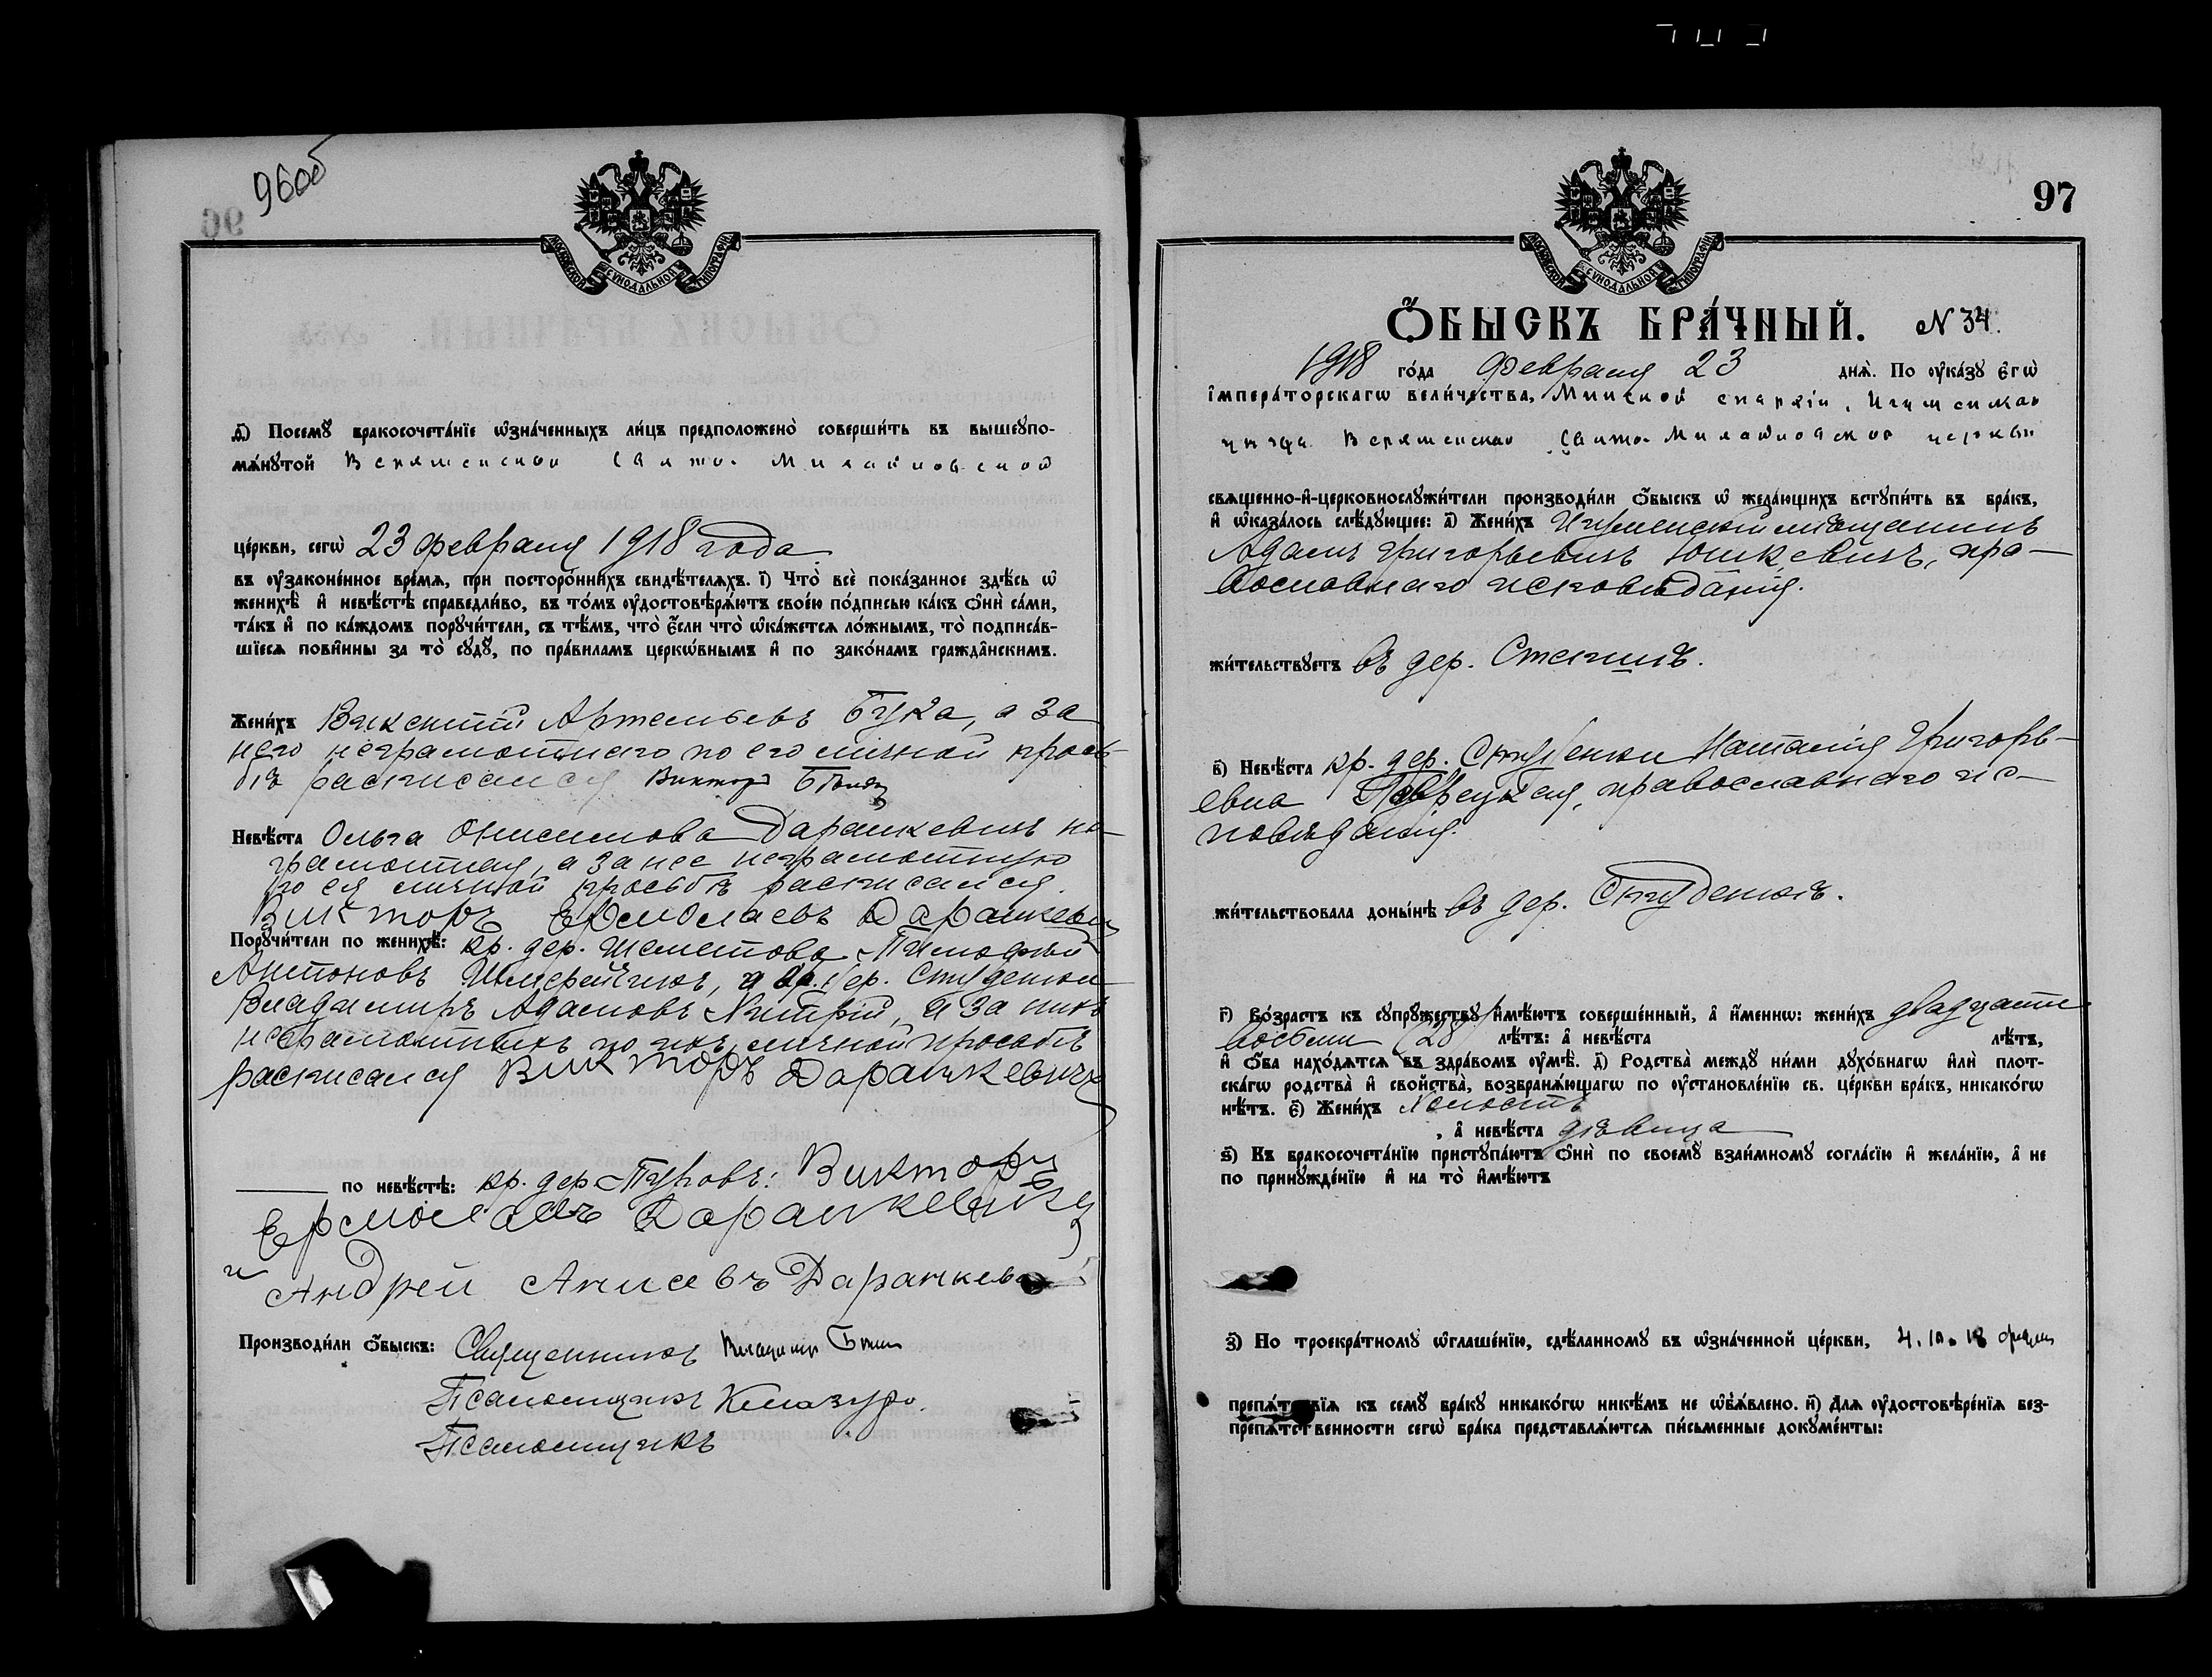 96об
96
МОСКОВСКОЙ СѴНОДАЛЬНОЙ ТИПОГРАФІИ
д҃) Посемꙋ̀ бракосочета́нїе ѡ҆зна́ченныхъ ли́цъ предположено̀ соверши́ть въ вышеꙋпо-
мѧ́нꙋтой Верхменской Свято-Михайловской
це́ркви, сегѡ̀ 23 февраля 1918 года
въ ᲂу҆зако́ненное вре́мѧ, при посторо́ннихъ свидѣ́телѧхъ. і҃) Что̀ всѐ пока́занное здѣ́сь ѡ҆
женихѣ̀ и҆ невѣ́стѣ справедли́во, въ то́мъ ᲂу҆достовѣрѧ́ютъ свое́ю по́дписью ка́къ ѻ҆нѝ са́ми,
та́къ и҆ по ка́ждомъ порꙋчи́тели, съ тѣ́мъ, что̀ є҆́сли что̀ ѡ҆ка́жетсѧ ло́жнымъ, то̀ подписа́в-
шїесѧ пови́нны за то̀ сꙋдꙋ̀, по пра́виламъ церко́внымъ и҆ по зако́намъ гражда́нскимъ.
Жени́хъ Викентій Артемьевъ Бука, а за
него неграмотнаго по его личной прось-
бѣ расписался Викторъ
Невѣ́ста Ольга Онисимова Даранкевичъ не-
грамотная, а за нее неграмотную
по ея личной просьбѣ расписался
Викторъ Ермолаевъ Даранкевич
Порꙋчи́тели по женихѣ̀: кр. дер. Шеметова Тимофей
Антоновъ и кр. дер. Студенки
Владимиръ Адамовъ а за нихъ
неграмотныхъ по ихъ личной просьбѣ
расписался Викторъ Даранкевичъ
по невѣ́стѣ: кр. дер. Викторъ
Ермолаевъ Даранкевичъ
и Андрей Анисевъ Даранкевич
Производи́ли ѻ҆́быскъ: Священникъ Владимиръ
Псаломщикъ
Псаломщикъ
97
МОСКОВСКОЙ СѴНОДАЛЬНОЙ ТИПОГРАФІИ
Ѻ҆́БЫСКЪ БРА́ЧНЫЙ. N 34.
1918 го́да февраля 23 днѧ̀. По ᲂу҆ка́зꙋ є҆гѡ̀
і҆мпера́торскагѡ вели́чества, Минской епархіи, Игуменскаго
уѣзда Верхменской Свято-Михайловской церкви
свѧще́нно-и҆-церковнослꙋжи́тели производи́ли ѻ҆́быскъ ѡ҆ жела́ющихъ встꙋпи́ть въ бра́къ,
и҆ ѡ҆каза́лось слѣ́дꙋющее: а҃) Жени́хъ Игуменскій мѣщанинъ
Адамъ Григорьевичъ Юшкевичъ, пра-
вославнаго исповѣданія.
жи́тельствꙋетъ въ дер.
в҃) Невѣ́ста кр. дер. Студенки Наталія Григорь-
евна православнаго ис-
повѣданія.
жи́тельствовала доны́нѣ въ дер. Студенкѣ.
г҃) Во́зрастъ къ сꙋпрꙋ́жествꙋ и҆мѣ́ютъ соверше́нный, а҆ и҆́меннѡ: жени́хъ двадцати
восьми (28) лѣ́тъ: а҆ невѣ́ста лѣ́тъ,
и҆ ѻ҆́ба нахо́дѧтсѧ въ здра́вомъ ᲂу҆мѣ̀. д҃) Родства̀ междꙋ̀ ни́ми дꙋхо́внагѡ и҆лѝ пло́т-
скагѡ родства̀ и҆ сво́йства, возбранѧ́ющагѡ по ᲂу҆становле́нїю св. це́ркви бра́къ, никако́гѡ
нѣ́тъ. є҃) Жени́хъ Холостъ
, а҆ невѣ́ста дѣвица
ѕ҃) Къ бракосочета́нїю пристꙋпа́ютъ ѻ҆нѝ по своемꙋ̀ взаи́мномꙋ согла́сїю и҆ жела́нїю, а҆ не
по принꙋжде́нїю и҆ на то̀ и҆мѣ́ютъ
з҃) По троекра́тномꙋ ѡ҆глаше́нїю, сдѣ́ланномꙋ въ ѡ҆зна́ченной це́ркви, 4, 10 и 18 февраля
препѧ́тствїѧ къ семꙋ̀ бра́кꙋ никако́гѡ никѣ́мъ не ѡ҆б̾ѧ́влено. и҃) Длѧ ᲂу҆достовѣре́нїѧ без-
препѧ́тственности сегѡ̀ бра́ка представлѧ́ютсѧ пи́сьменные докꙋме́нты: